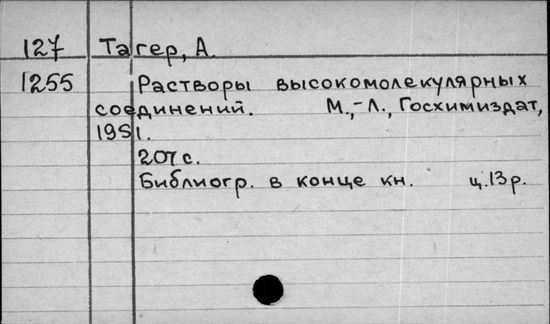 127 Тагер, А.
1255 Растворы высокомолекулярных
соединений. М.,-Л., Госхимиздат,
1951.
207 с.
Библиогр. в конце кн. ц.13 р.